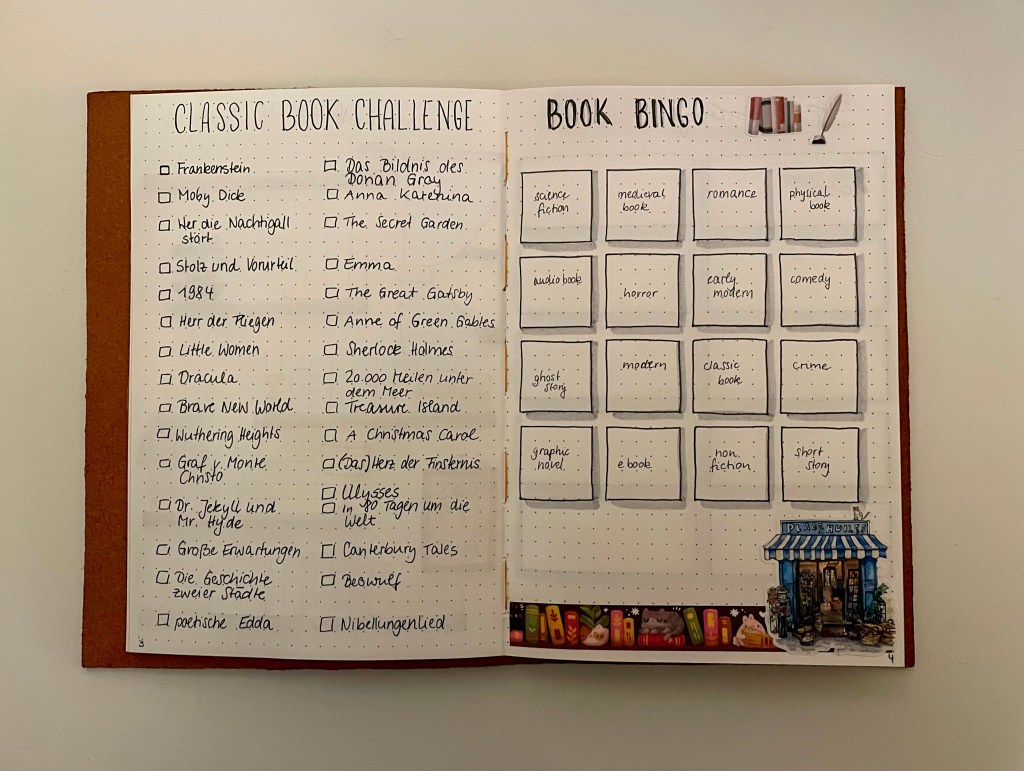 CLASSIC BOOK CHALLENGE
Frankenstein
Moby Dick
Wer die Nachtigall
stört
Stolz und Vorurteil
1984
Herr der Fliegen
Little Women
Dracula
Brave New World
Wuthering Heights
Graf v. Monte
Christo
Dr. Jekyll und
Mr. Hyde
Große Erwartungen
Die Geschichte
zweier Städte
poetische Edda
Das Bildnis des
Dorian Gray
Anna Karenina
The Secret Garden
Emma
The Great Gatsby
Anne of Green Gables
Sherlock Holmes
20.000 Meilen unter
dem Meer
Treasure Island
A Christmas Carol
(Das) Herz der Finsternis
Ulysses
in 80 Tagen um die
Welt
Canterbury Tales
Beowulf
Nibelungenlied
3
BOOK BINGO
science
fiction
medieval
book
romance
physical
book
audiobook
horror
early
modern
comedy
ghost
story
modern
classic
book
crime
graphic
novel
ebook
non
fiction
short
story
4